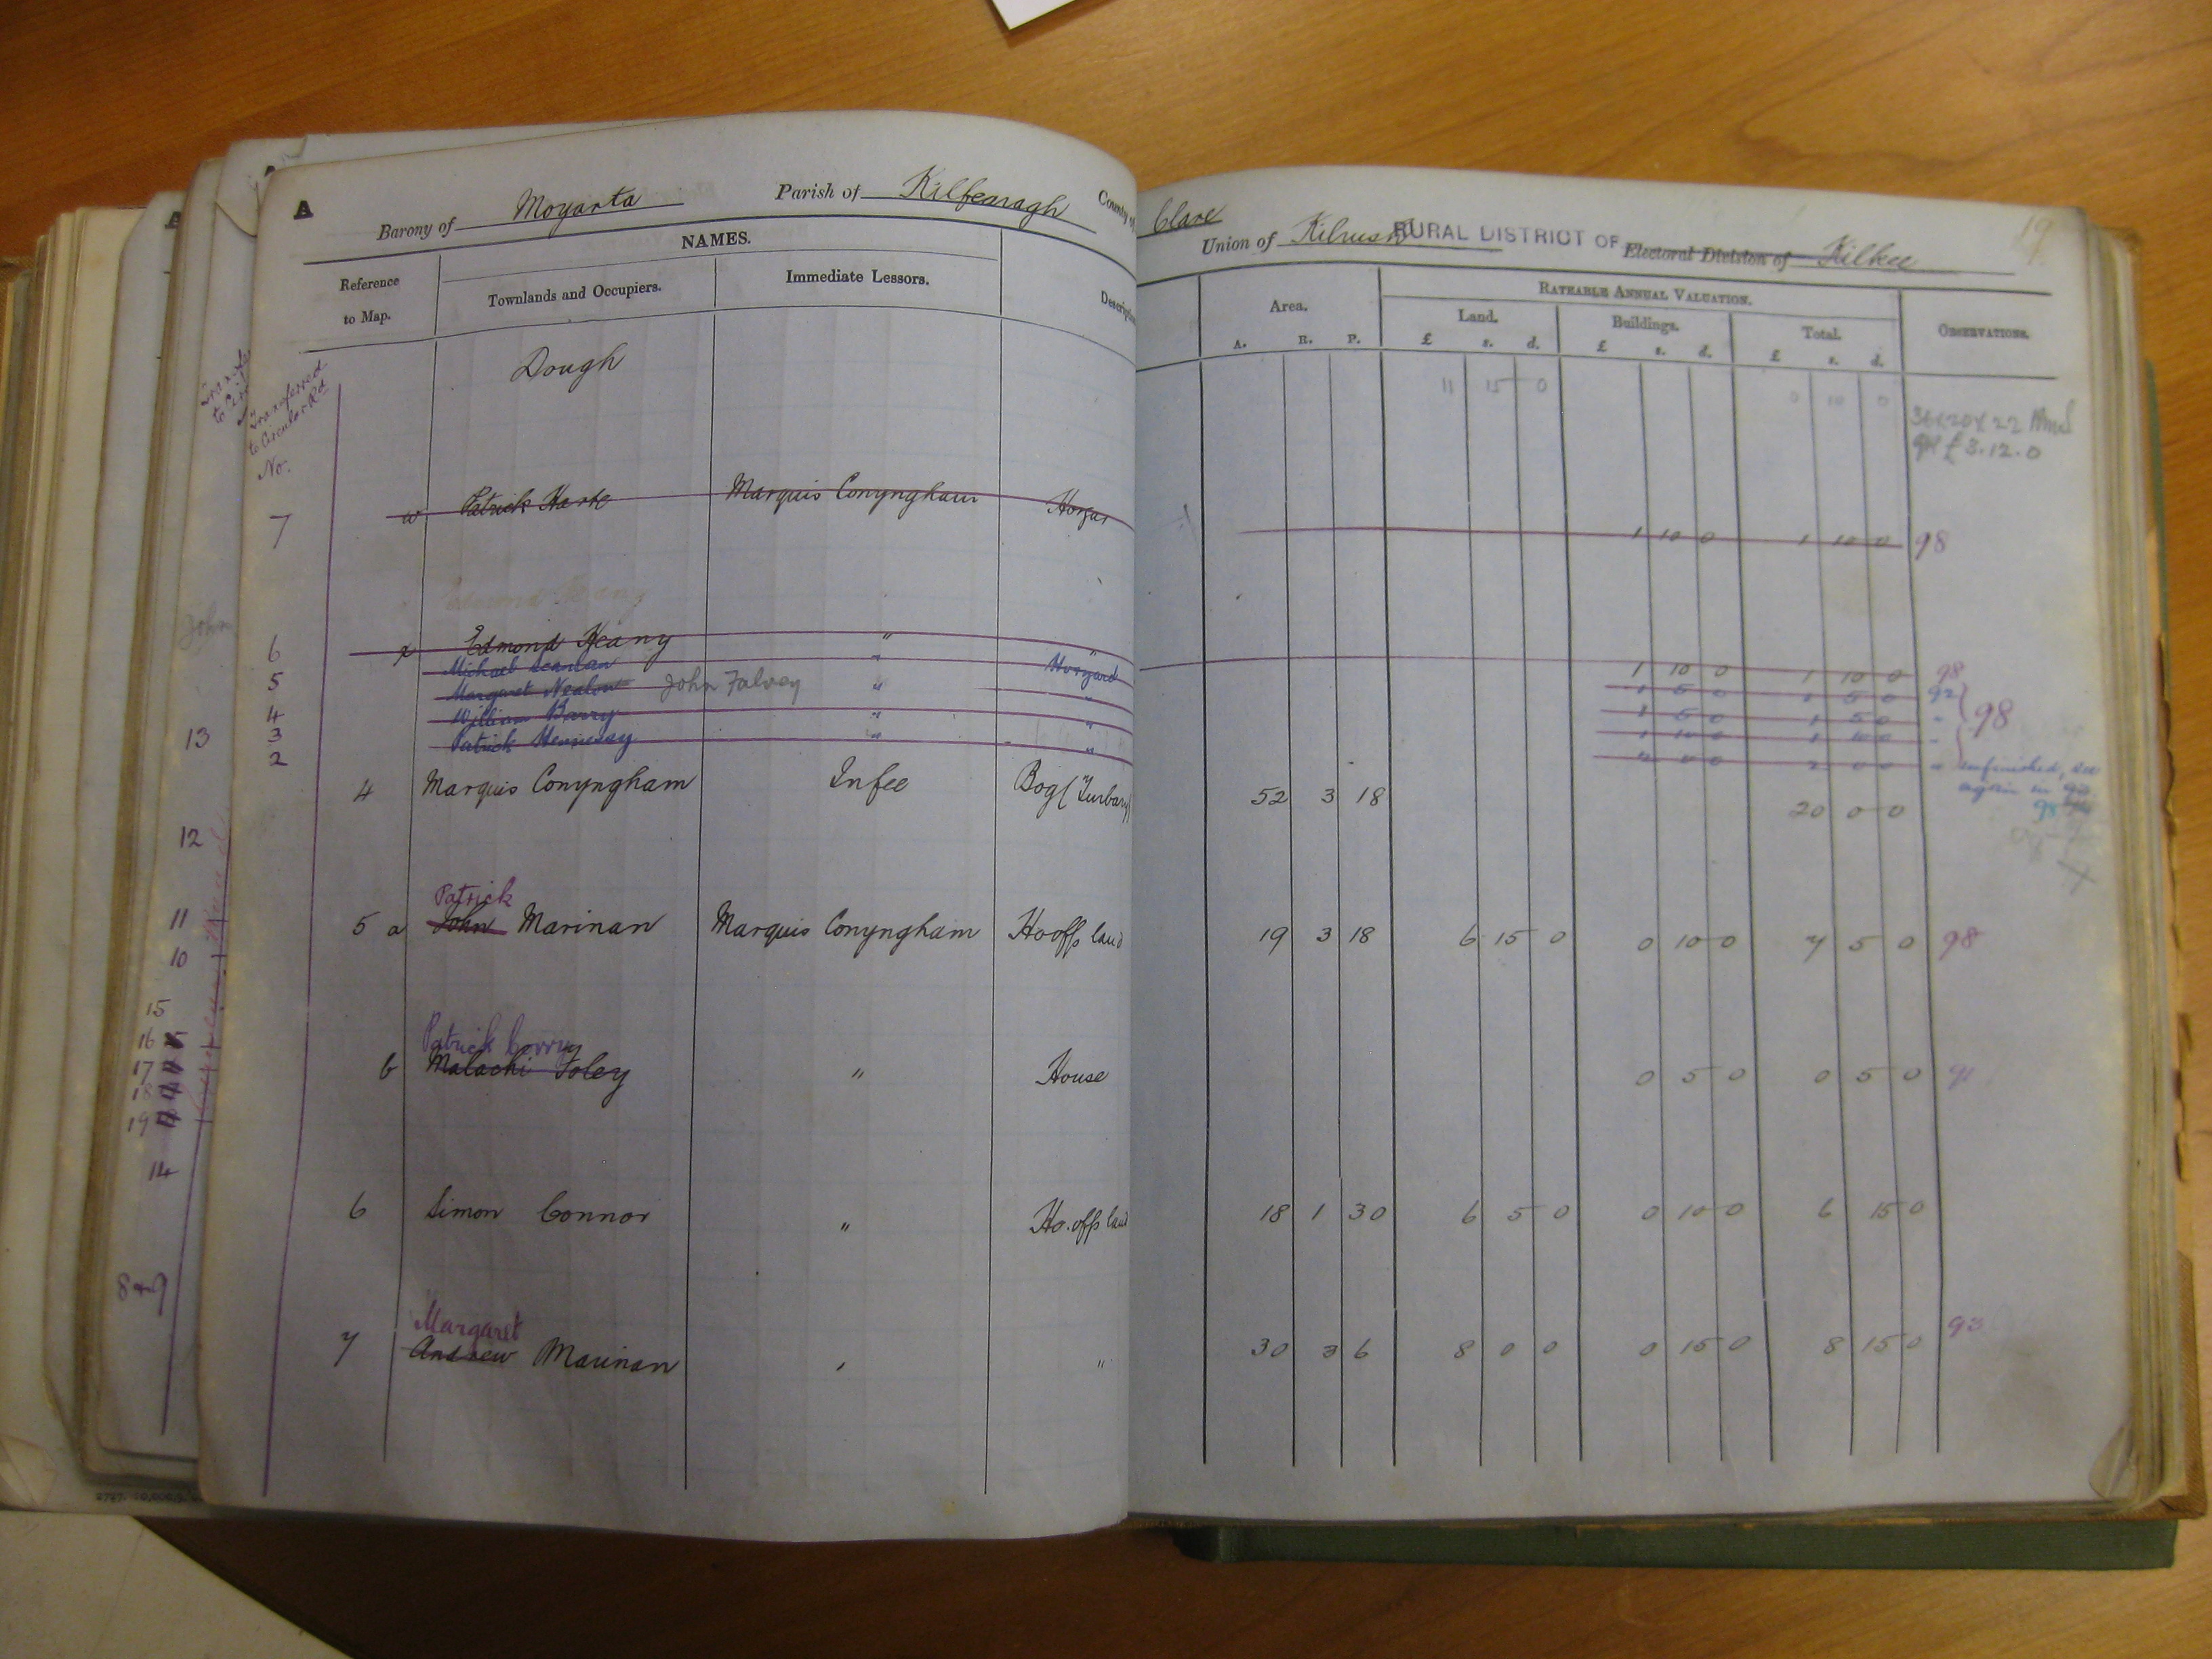 A
Barony of Moyarta Parish of Kilfearagh County of Clare Union of Kilrush RURAL DISTRICT OF Electoral Division of Kilkee 19
NAMES.
Reference to Map. Townlands and Occupiers. Immediate Lessors. Area. RATEABLE ANNUAL VALUATION. OBSERVATIONS.
Land. Buildings. Total.
A. R. P. £ s. d. £ s. d. £ s. d.
Transferred to Circular Rd No.
Dough 11 15 0 0 10 0
£3.12.0
7 w Patrick Harte Marquis Conyngham 1 10 0 1 10 0 98
Edmond Keany
6 x Edmond Keany " " 1 10 0 1 10 0 98
5 Michael Scanlan " Ho.yard 1 5 0 1 5 0 92
4 Margaret Nealon John Falvey " " 1 5 0 1 5 0 " 98
3 William Barry " " 1 10 0 1 10 0 "
2 Patrick Hennessy " " 2 0 0 2 0 0 " unfinished, see
again in
98
4 Marquis Conyngham In fee Bog (Turbary) 52 3 18 20 0 0
Patrick
5 a John Marinan Marquis Conyngham Ho offs land 19 3 18 6 15 0 0 10 0 7 5 0 98
Patrick Corry
b Malachi Foley " House 0 5 0 0 5 0 91
6 Simon Connor " Ho. offs land 18 1 30 6 5 0 0 10 0 6 15 0
Margaret
7 Andrew Marinan " " 30 3 6 8 0 0 0 15 0 8 15 0 93
John
13
12
11
10
15
16
17
18
19
14
8+9